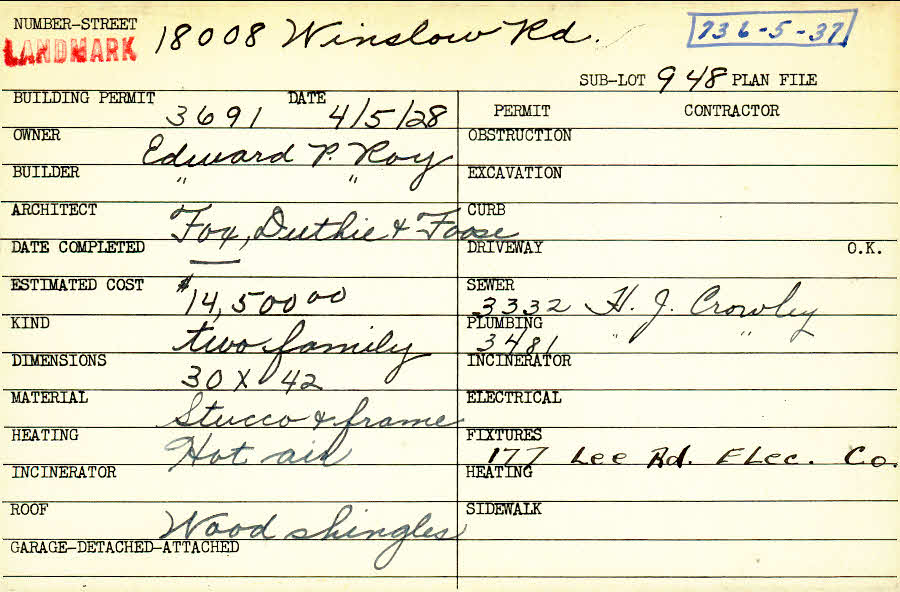 NUMBER-STREET
LANDMARK 18008 Winslow Rd. 736-5-37
SUB-LOT 948 PLAN FILE
BUILDING PERMIT 3691 DATE 4/5/28
PERMIT CONTRACTOR
OWNER Edward P. Roy
OBSTRUCTION
BUILDER " "
EXCAVATION
ARCHITECT Fox, Duthie & Foose
CURB
DATE COMPLETED —
DRIVEWAY O.K.
ESTIMATED COST $14,500.00
SEWER 3332 H. J. Crowley
KIND two family
PLUMBING 3481 " "
DIMENSIONS 30 X 42
INCINERATOR
MATERIAL Stucco & frame
ELECTRICAL
HEATING Hot air
FIXTURES 177 Lee Rd. Elec. Co.
INCINERATOR
HEATING
ROOF Wood shingles
SIDEWALK
GARAGE-DETACHED-ATTACHED